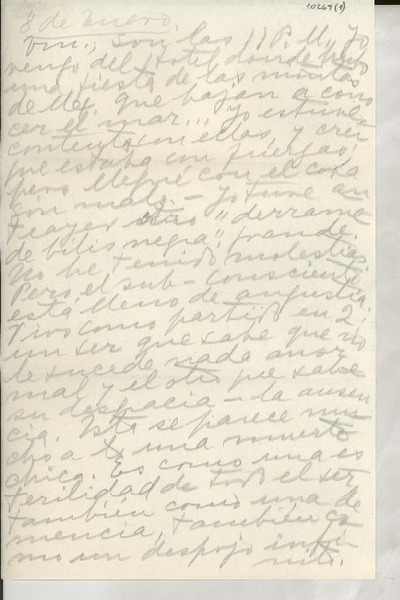 10269 (1)
8 de Enero.
Vm., son las 11 P.M., Yo
vengo del hotel donde hubo
una fiesta de las niñitas
de Mex. que bajan a cono
cer el mar... Yo estuve
contenta con ellas, y creí
que estaba con fuerzas,
pero llegué con el cora
zón malo.- Yo tuve an
teayer otro "derrame
de bilis negra" grande.
No he tenido molestias.
Pero el sub-consciente
está lleno de angustia.
Vivo como partida en 2:
un ser que sabe que no
le sucede nada anor
mal y el otro que sabe
su desgracia - la ausen
cia. Esto se parece mu
cho a una muerte
chica. Es como una es
terilidad de todo el ser,
también como una de
mencia, también co
mo un despojo infi
nito.